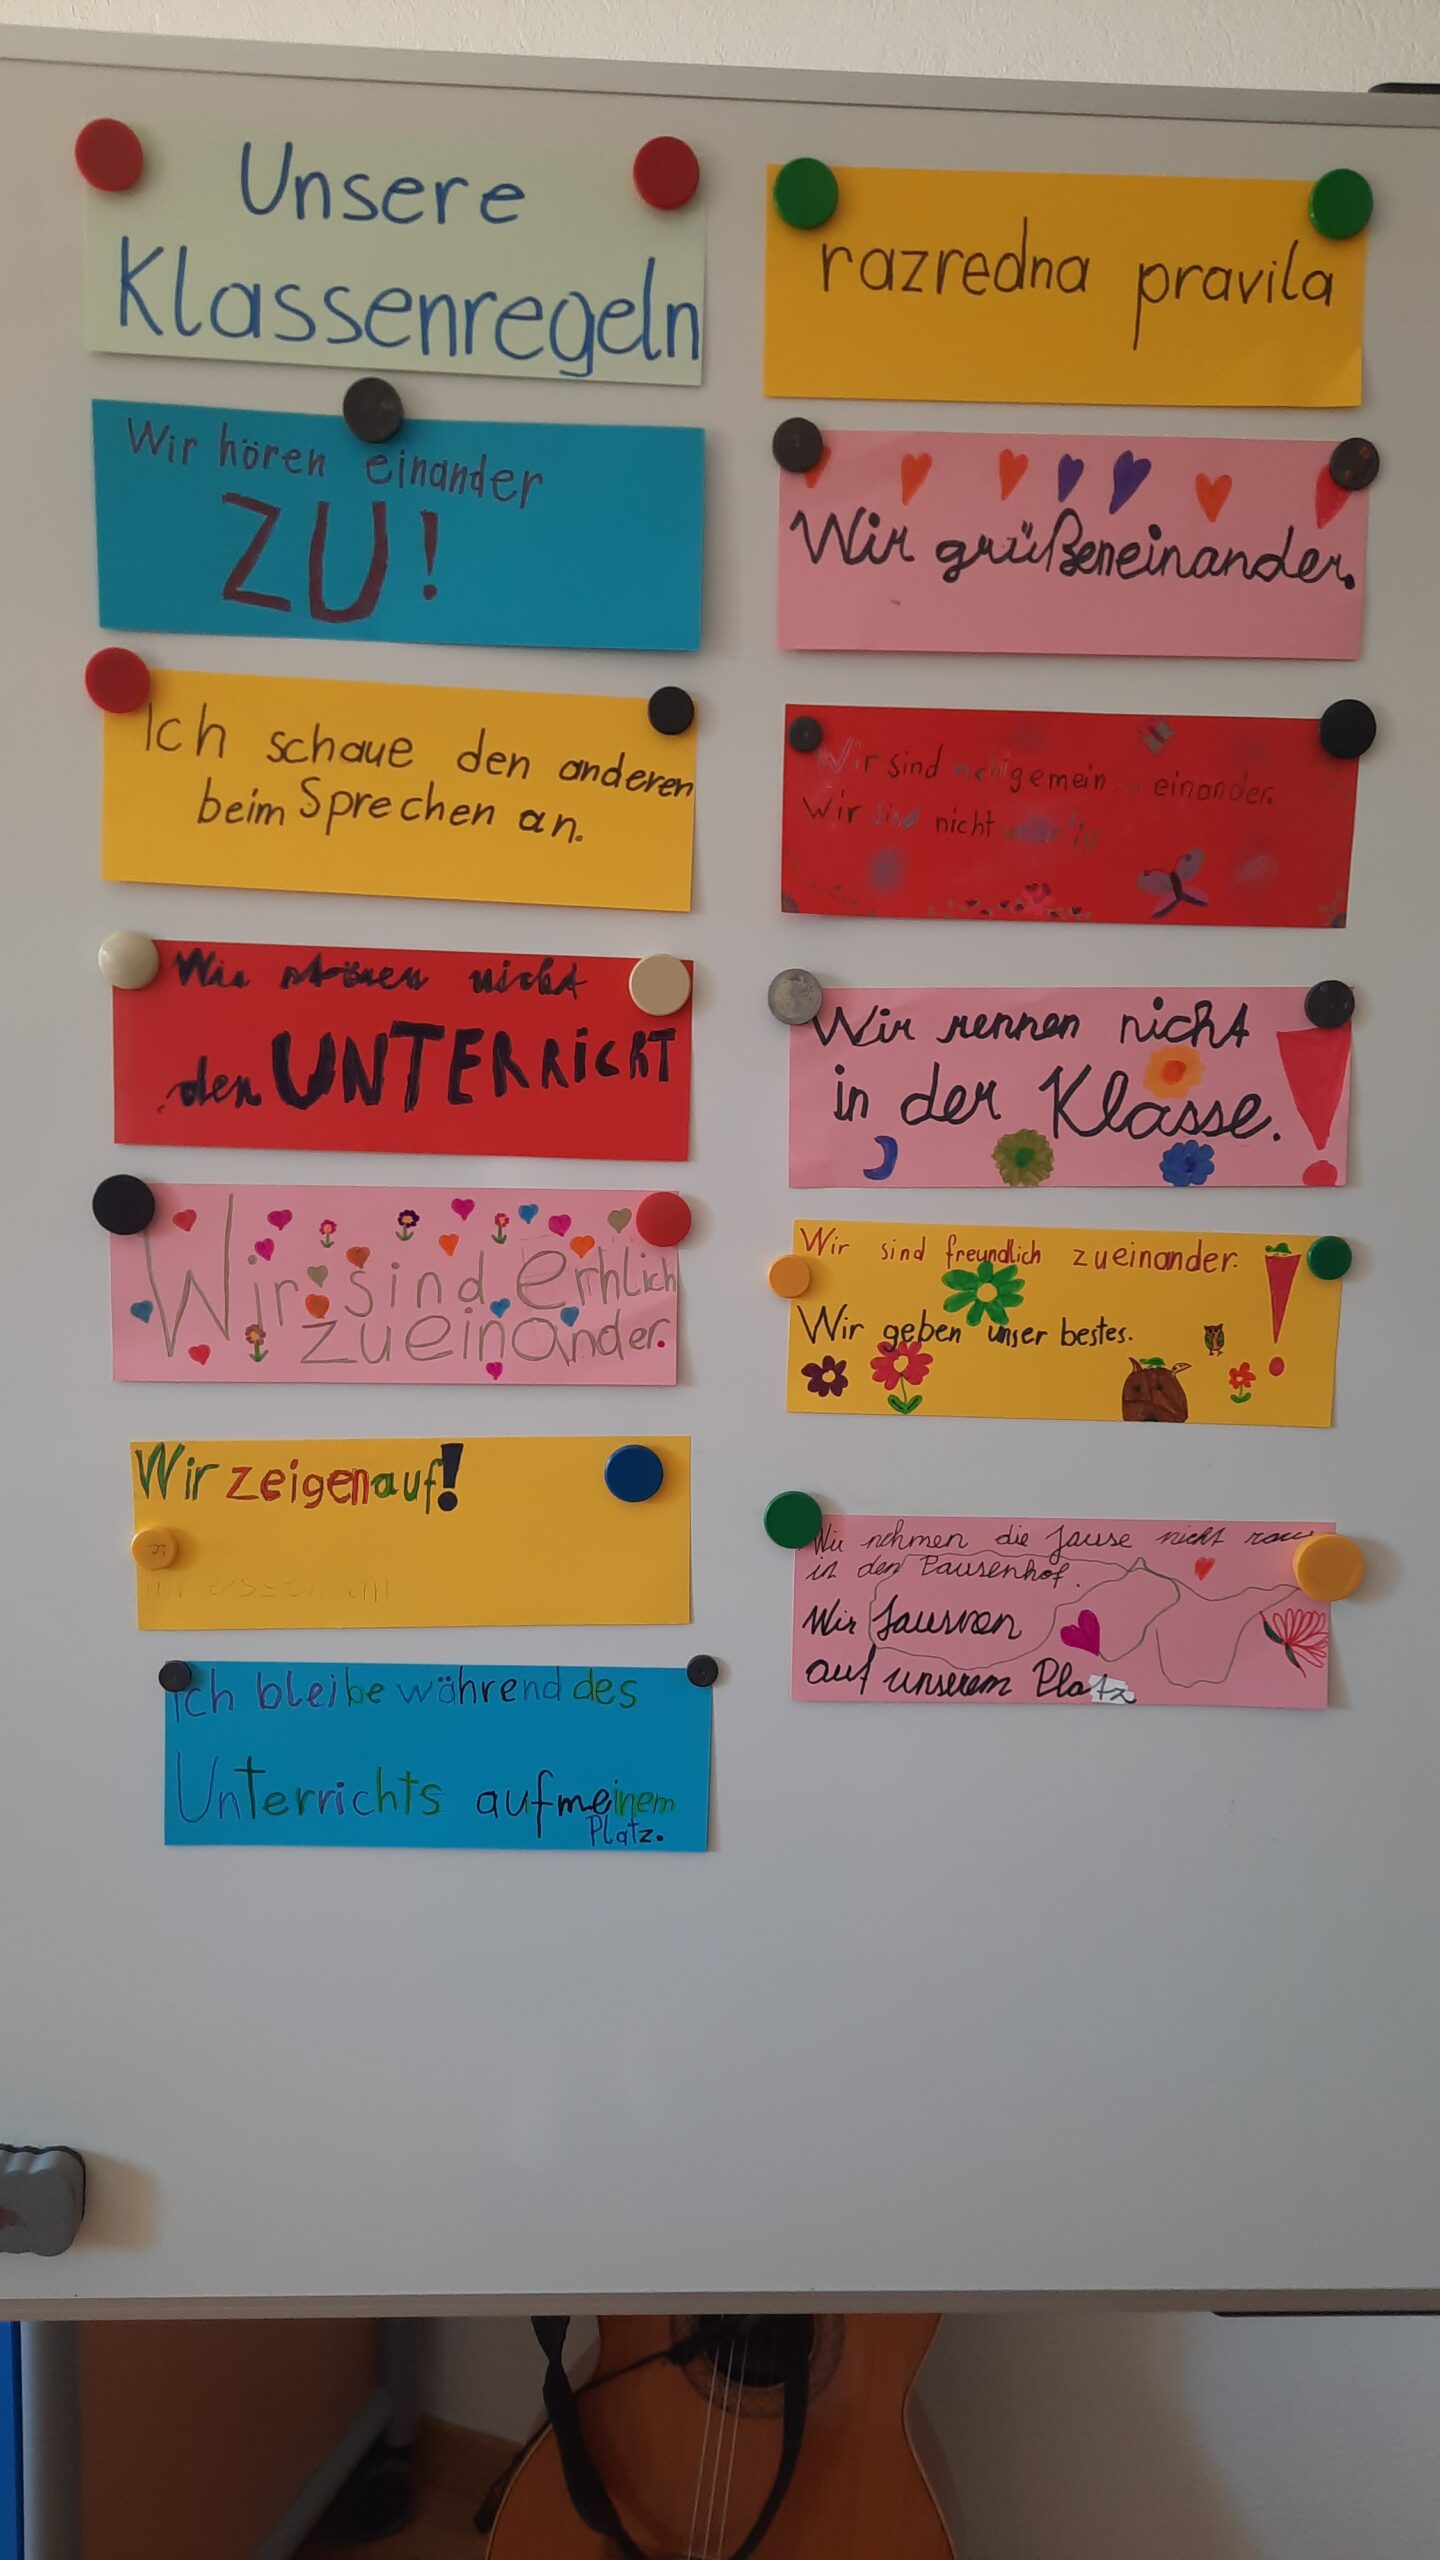 Unsere
Klassenregeln
Wir hören einander
ZU!
Ich schaue den anderen
beim Sprechen an.
Wir stören nicht
den UNTERRICHT
Wir sind Erhlich
zueinander.
Wir zeigen auf!
Ich bleibe während des
Unterrichts auf meinem
Platz.
razredna pravila
Wir grüßen einander.
Wir sind nicht gemein zu einander.
Wir sind nicht unartig
Wir rennen nicht
in der Klasse.
Wir sind freundlich zueinander.
Wir geben unser bestes.
Wir nehmen die Jause nicht raus
in den Pausenhof.
Wir
auf unserem Platz